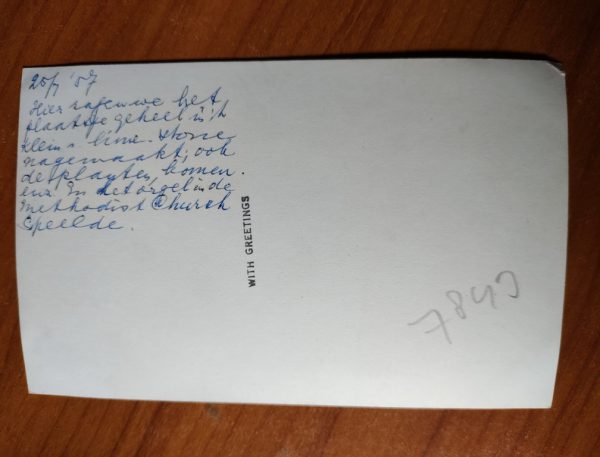 25/7 '57
Hier zagen we het
plaatsje geheel in 't
klein v. lime-stone
nagemaakt; ook
de planten, bomen
enz. En het orgel in de
Methodist Church
speelde.
WITH GREETINGS